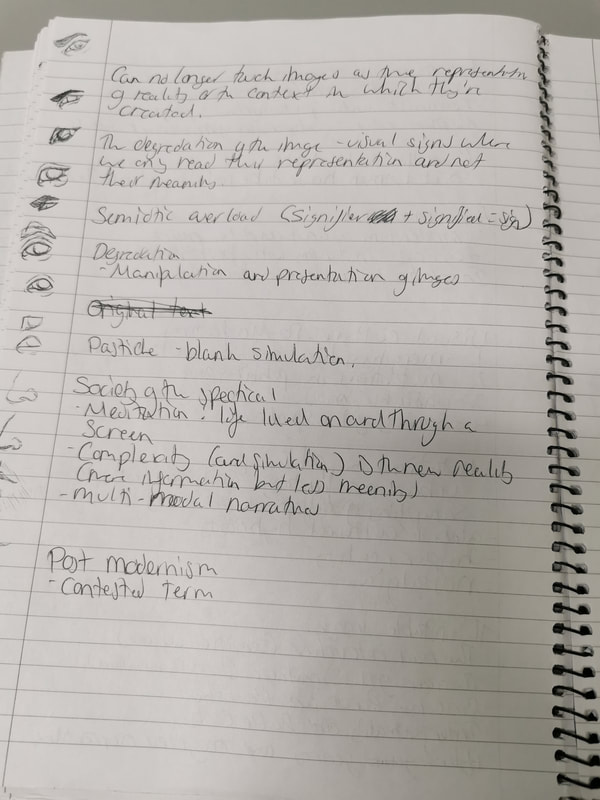 Can no longer teach images as true representation
of reality or the context in which they're
created.
The degredation of the image - visual signs where
we only read their representation and not
their meanings.
Semiotic overload (Signifier + signified = sign)
Degredation
- Manipulation and presentation of images
Original text
Pastiche - blank simulation.
Society of the spectical
- Meditation : life lived on and through a
Screen
- Complexity (and simulation) is the new reality
(more information but less meening)
- multi-modal narratives
Post modernism
- Contested term